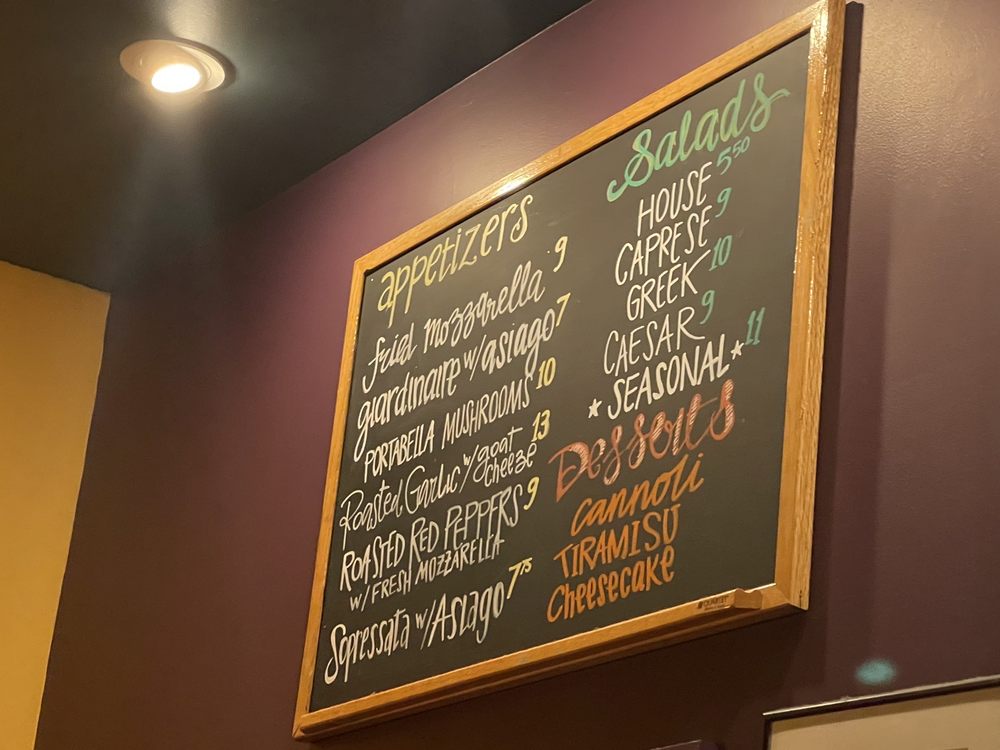 appetizers
fried mozzarella 9
giardinaire w/asiago 7
PORTABELLA MUSHROOMS 10
Roasted Garlic w/goat cheeze 13
ROASTED RED PEPPERS 9
w/FRESH MOZZARELLA
Sopressata w/Asiago 7.75
Salads
HOUSE 5.50
CAPRESE 9
GREEK 10
CAESAR 9
*SEASONAL* 11
Desserts
cannoli
TIRAMISU
Cheesecake
QUARTET